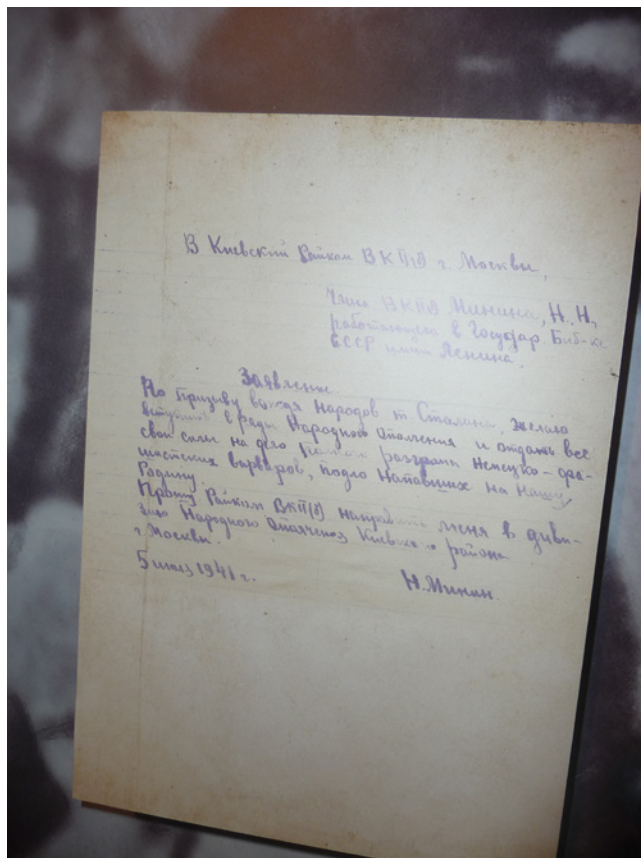 В Киевский Райком ВКП(б) г. Москвы,
Члена ВКП(б) Минина, Н. Н.,
работающего в Государ. Биб-ке
СССР имени Ленина.
Заявление
По призыву вождя народов т. Сталина, желаю
вступить в ряды Народного Ополчения и отдать все
свои силы на дело разгрома Немецко-фа-
шистских варваров, подло напавших на Нашу
Родину.
Прошу Райком ВКП(б) направить меня в диви-
зию Народного Ополчения Киевского района
г. Москвы.
5 июля 1941 г.
Н. Минин.